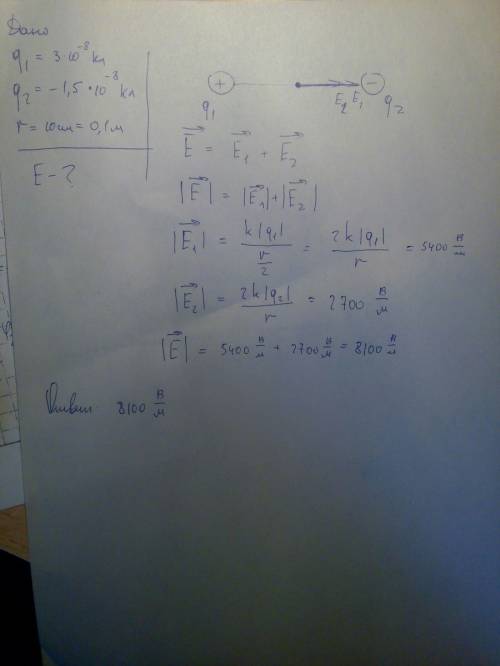 Дано
q₁ = 3·10⁻⁸ Кл
q₂ = -1,5·10⁻⁸ Кл
r = 10см = 0,1м
E - ?
+ −
q₁ E₂ E₁ q₂
E⃗ = E⃗₁ + E⃗₂
|E⃗| = |E⃗₁| + |E⃗₂|
|E⃗₁| = k|q₁| / (r/2) = 2k|q₁| / r = 5400 В/м
|E⃗₂| = 2k|q₂| / r = 2700 В/м
|E⃗| = 5400 В/м + 2700 В/м = 8100 В/м
Ответ 8100 В/м